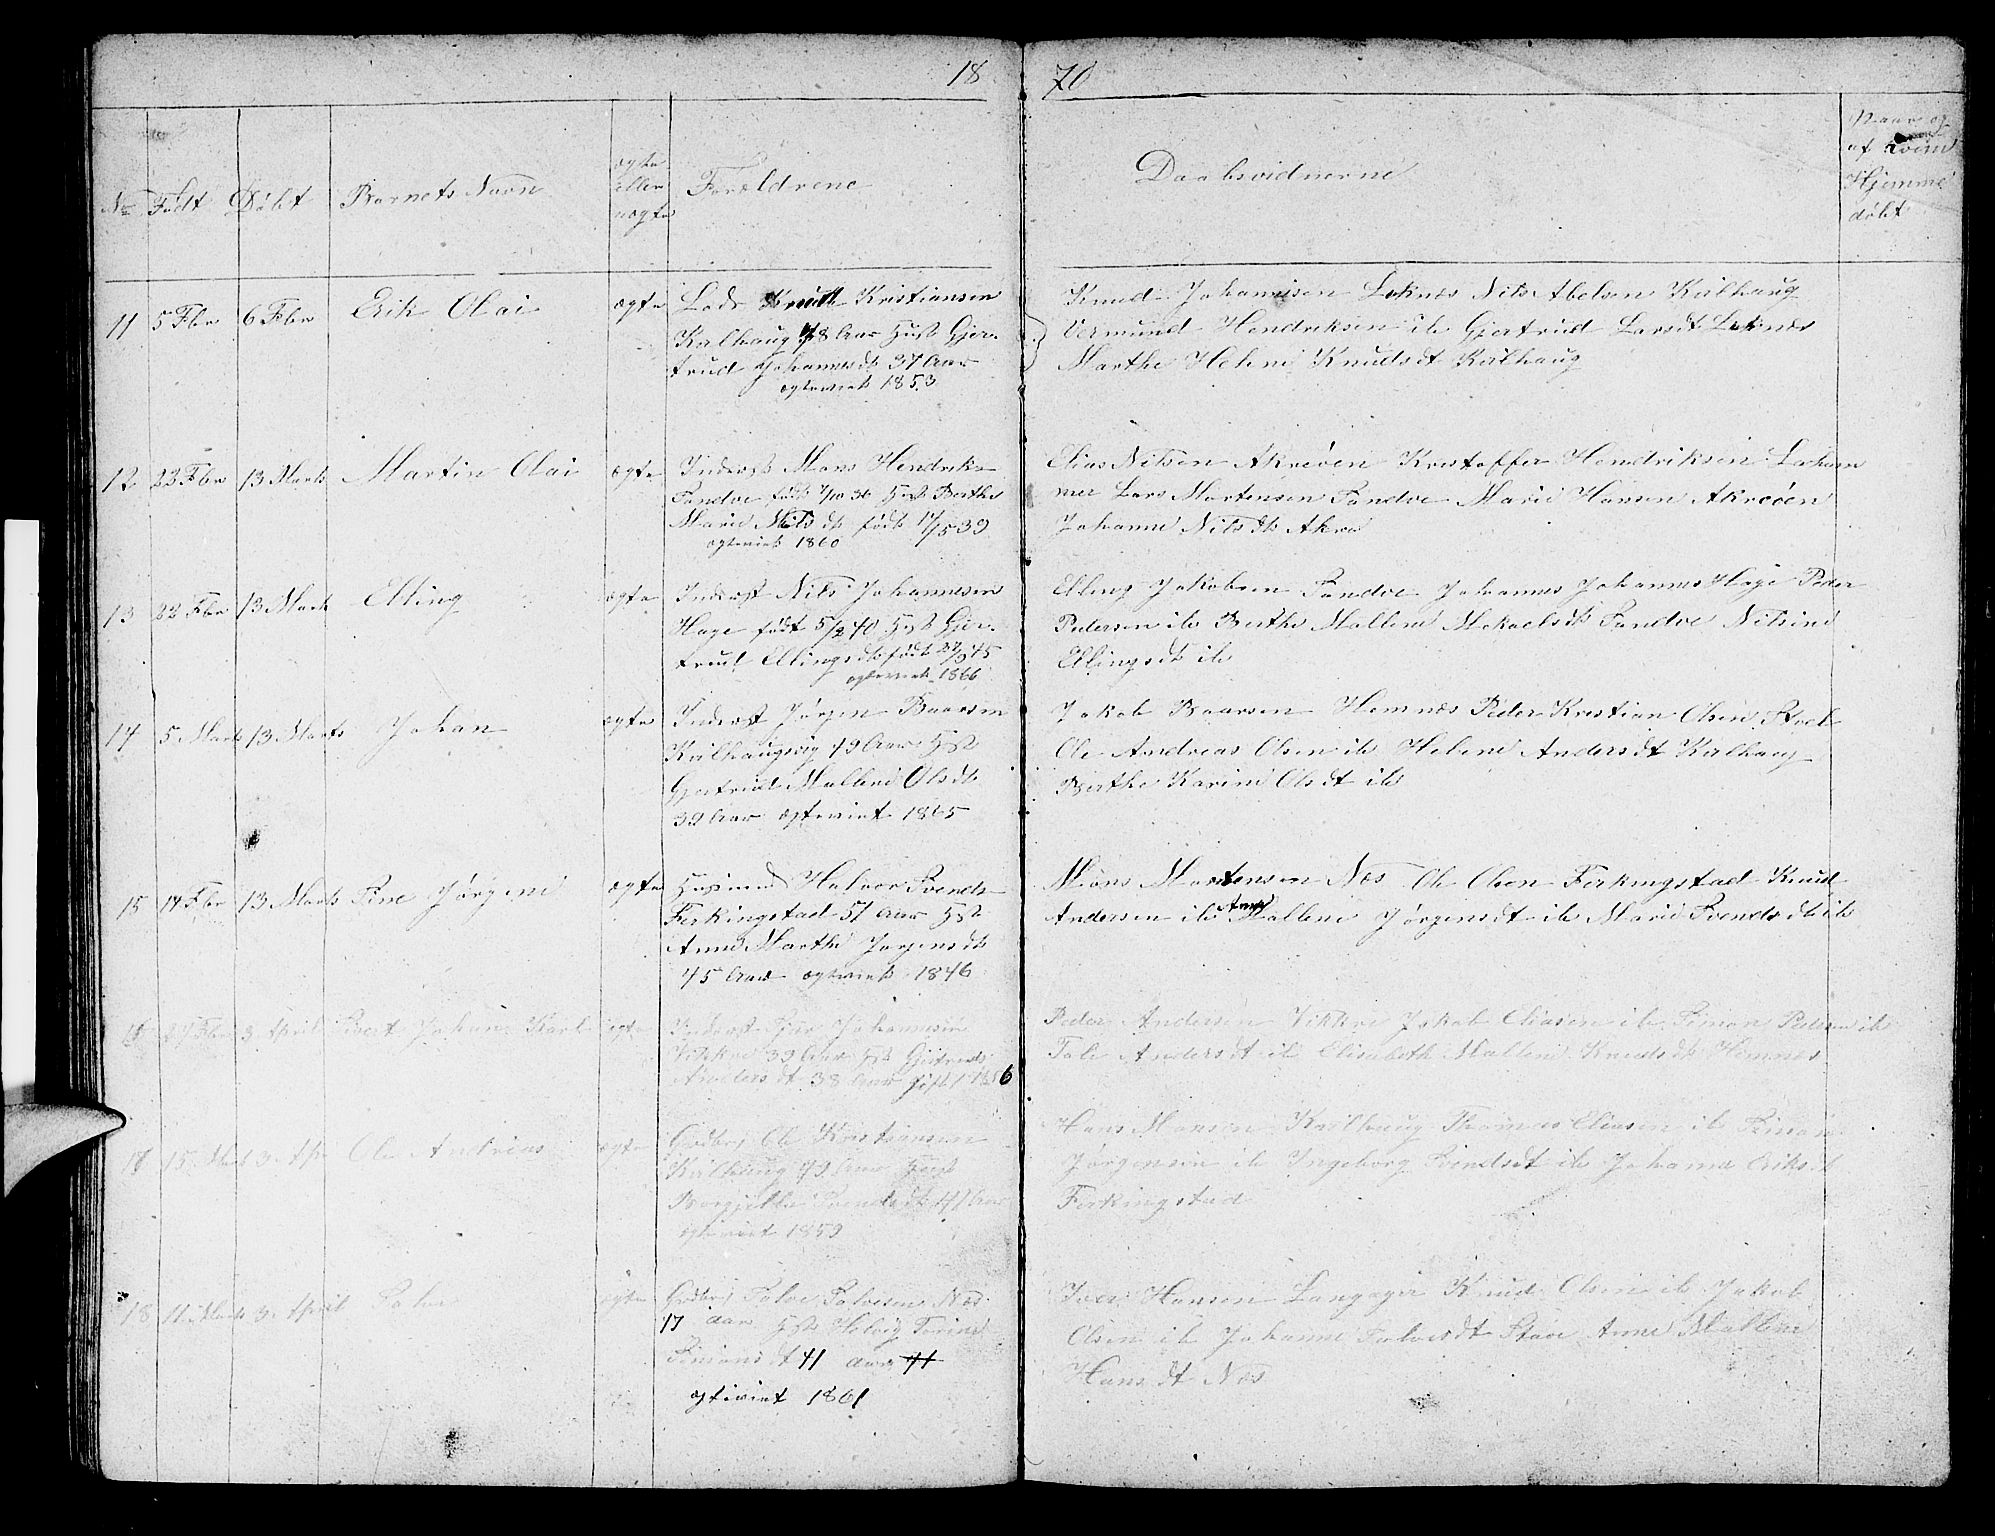 18 70
No Født Døbt Barnets Navn ægte eller uægte Forældrene Daabsvidnerne Naar og af hvem Hjemme døbt
11 5 Fbr 6 Fbr Erik Olai ægte Lods Knud Kristiansen
Kalhaug 48 Aar Hust Gjer-
trud Johannesdt 37 Aar
ægteviet 1853
Knud Johannesen Loknes Nils Abelsen Kalhaug
Vermund Hendriksen ib Gjertrud Larsdt Loknes
Marthe Helene Knudsdt Kalhaug
12 23 Fbr 13 Marts Martin Olai ægte Inderst Mons Hendriks
Sandve født 7/10 36 Hust Berthe
Marie Nilsdt født 17/5 39
ægteviet 1860
Elias Nilsen Akreøen Kristoffer Hendriksen
Lars Mortensen Sandve Marie Hansen Akreøen
Johanne Nilsdt Akre
13 22 Fbr 13 Marts Elling ægte Inderst Nils Johannesen
Hage født 5/2 40 Hust Gjer-
trud Ellingsdt født 27/9 45
ægteviet 1866
Elling Jakobsen Sandve Johannes Johannes Hage Peder
Pedersen ib Berthe Mallene Mikaelsdt Sandve Nilsine
Ellingsdt ib
14 5 Marts 13 Marts Johan ægte Inderst Jørgen Baarsen
Kalhaugvig 49 Aar Hust
Gjertrud Mallene Olsdt
39 Aar ægteviet 1865
Jakob Baarsen Hemnes Peder Kristian Olsen
Ole Andreas Olsen ib Helene Andersdt Kalhaug
Berthe Karine Olsdt ib
15 14 Fbr 13 Marts Sine Jørgene ægte Husmand Halvor Svends
Ferkingstad 51 Aar Hust
Anne Marthe Jørgensdt
45 Aar ægteviet 1846
Mons Mortensen Nes Ole Olsen Ferkingstad Knud
Andersen ib Anne Mallene Jørgensdt ib Marie Svendsdt ib
16 27 Fbr 3 April Sivert Johan Karl ægte Inderst Johannesen
Vikkre 39 Aar Hust Gjertrud
Andersdt 38 Aar gift 1856
Peder Andersen Vikkre Jakob Eliasen ib Simon Pedersen ib
Tale Andersdt ib Elisabeth Mallene Knudsdt Hemnes
17 15 Marts 3 Apr Ole Andreas ægte Gaardbr Ole Kristiansen
Kalhaug 49 Aar Hust
Svendsdt 41 Aar
ægteviet 1859
Hans Monsen Kalhaug Thomas Eliasen ib Simon
Jørgensen ib Ingeborg Svendsdt ib Johanne Eriksdt
Ferkingstad
18 11 Marts 3 April Salve ægte Gaardbr Salve Salvesen Nes
47 Aar Hust Helvig Torine
Simonsdt 41 Aar
ægteviet 1861
Iver Hansen Langager Knud Olsen ib Jakob
Olsen ib Johanne Salvesdt Stave Anne Malline
Hansdt Nes